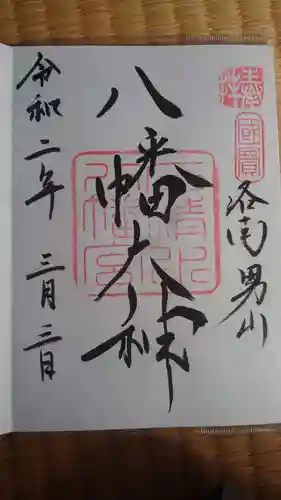 奉拝
國寶
洛南男山
八幡大神
石清水八幡宮
令和二年 三月三日